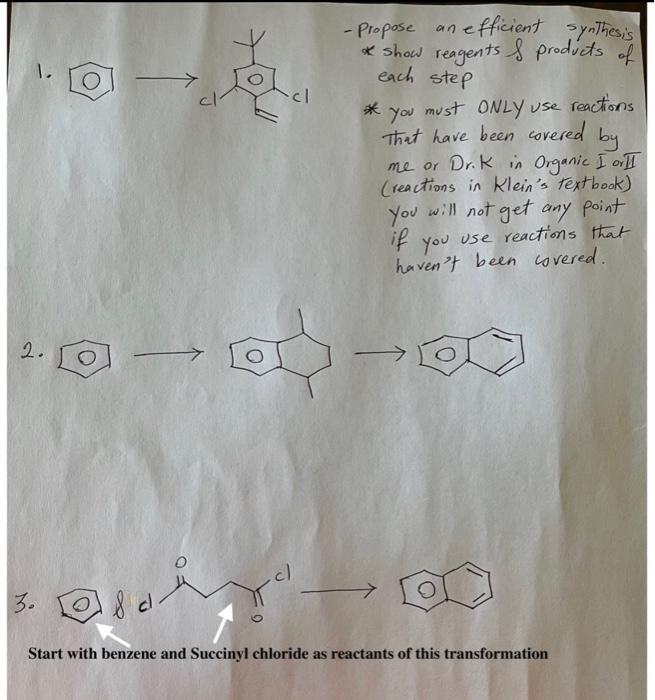 - Propose an efficient synthesis
* show reagents & products of
each step
* you must ONLY use reactions
that have been covered by
me or Dr.K in Organic I or II
(reactions in Klein's textbook)
You will not get any point
if you use reactions that
haven't been covered.
1.
cl
cl
2.
3.
& cl
O
O
cl
Start with benzene and Succinyl chloride as reactants of this transformation